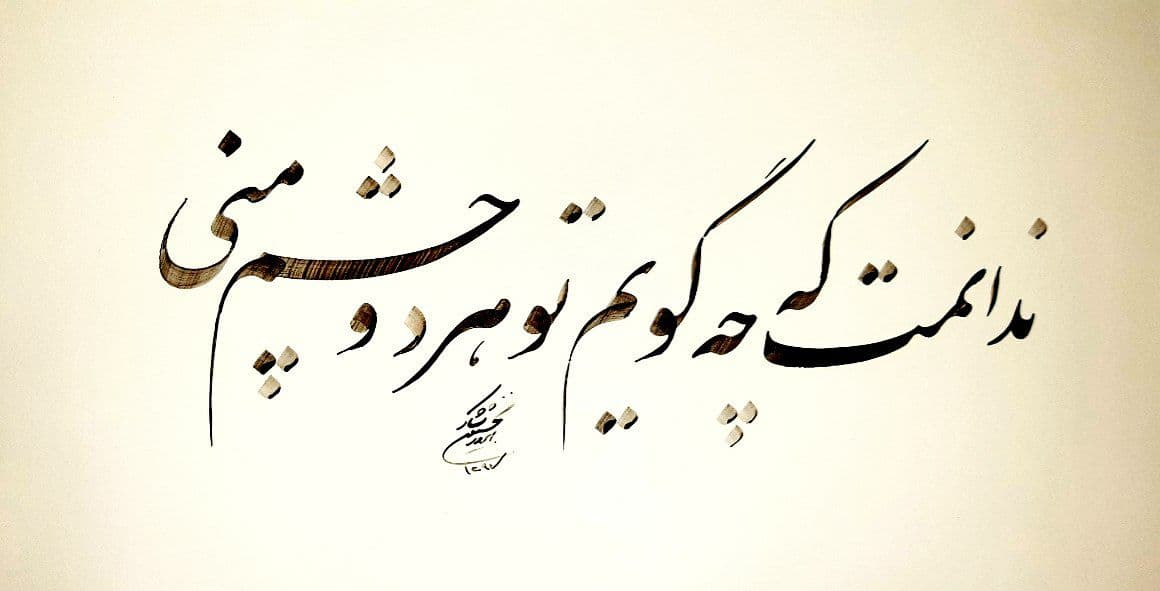 ندانمت که چه گویم تو هر دو چشم منی